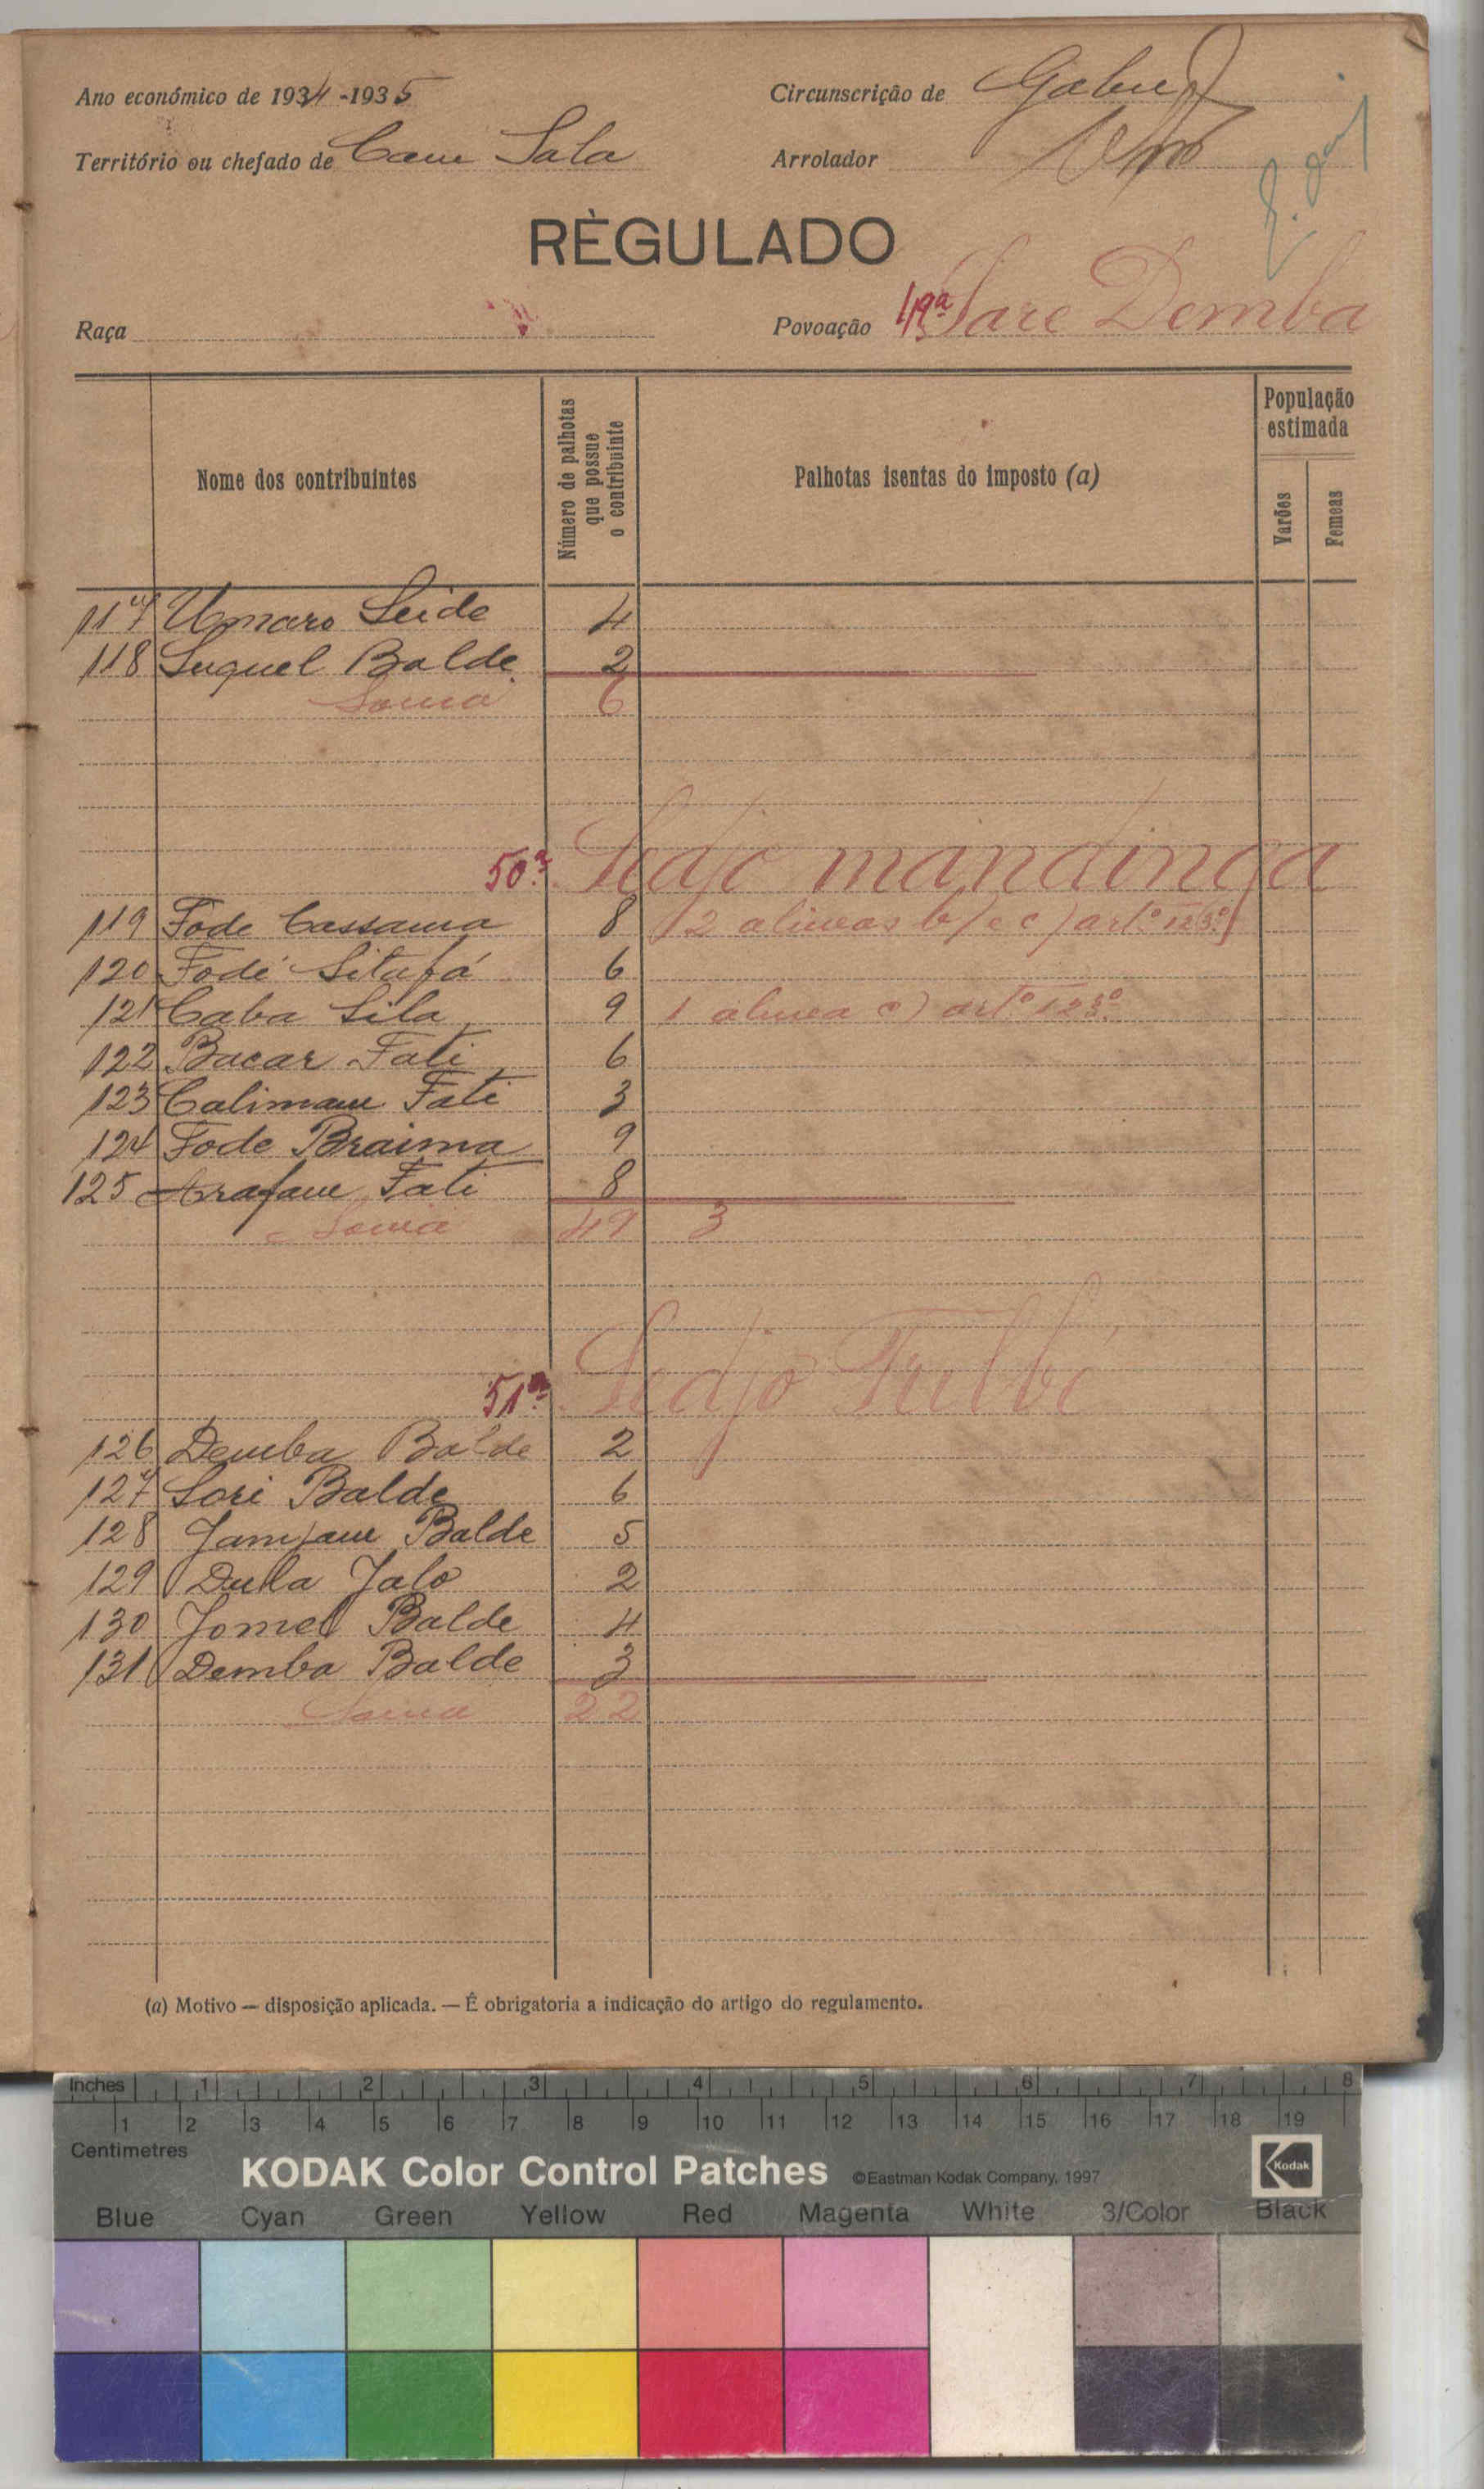 Ano económico de 1934-1935
Circunscrição de Gabu
Território ou chefado de Cam Sala
Arrolador
RÈGULADO
Raça
Povoação 49ª Sare Demba
Nome dos contribuintes
Número de palhotas que possue o contribuinte
Palhotas isentas do imposto (a)
População estimada
Varões
Femeas
117 Umaro Seide 4
118 Suquel Balde 2
Soma 6
50ª Sedjo mandinga
119 Fode Cassama 8 (2 alineas b) e c) artº 123º)
120 Fodé Sitafá 6
121 Caba Sila 9 1 alinea c) artº 123º
122 Bacar Fati 6
123 Calimam Fati 3
124 Fode Braima 9
125 Arafam Fati 8
Soma 49 3
51ª Sedjo Fulbé
126 Demba Balde 2
127 Sori Balde 6
128 Jamjam Balde 5
129 Dula Jalo 2
130 Jomel Balde 4
131 Demba Balde 3
Soma 22
(a) Motivo — disposição aplicada. — É obrigatoria a indicação do artigo do regulamento.
Inches 1 2 3 4 5 6 7 8
1 2 3 4 5 6 7 8 9 10 11 12 13 14 15 16 17 18 19
Centimetres
KODAK Color Control Patches ©Eastman Kodak Company, 1997 Kodak
Blue Cyan Green Yellow Red Magenta White 3/Color Black